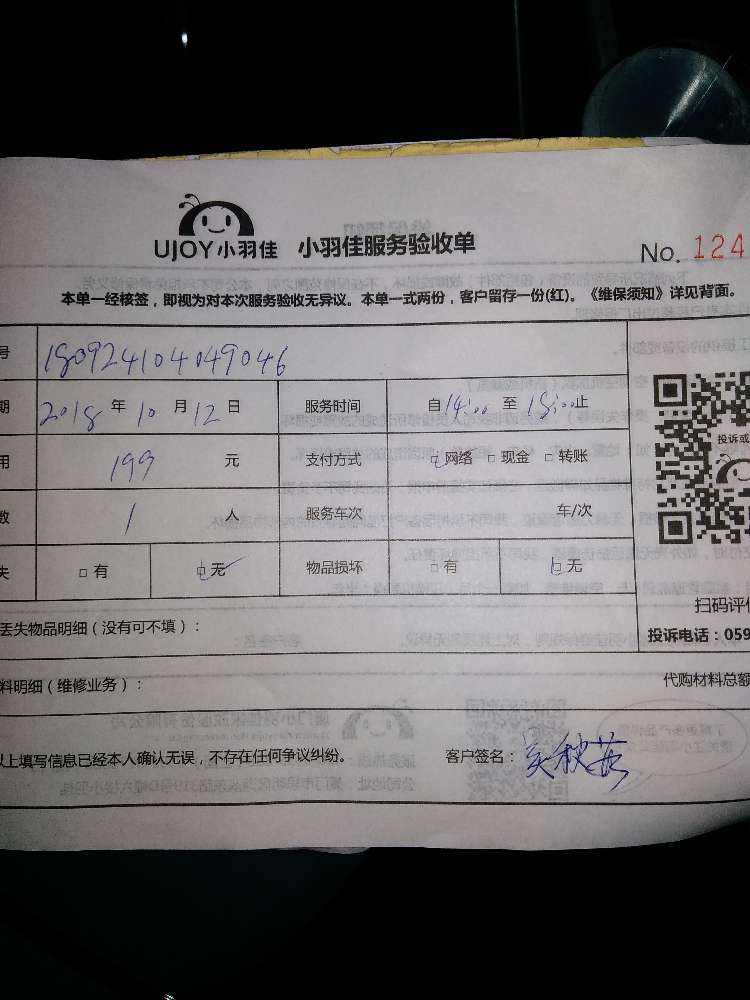 UJOY小羽佳 小羽佳服务验收单 No. 124
本单一经核签，即视为对本次服务验收无异议。本单一式两份，客户留存一份(红)。《维保须知》详见背面。
号 180924104049046
期 2018 年 10 月 12 日 服务时间 自 14:00 至 18:00 止
用 199 元 支付方式 网络 □ 现金 □ 转账
数 1 人 服务车次 车/次
失 □ 有 无 物品损坏 □ 有 无
投诉或
扫码评价
丢失物品明细（没有可不填）： 投诉电话：059
料明细（维修业务）： 代购材料总额
以上填写信息已经本人确认无误，不存在任何争议纠纷。 客户签名：